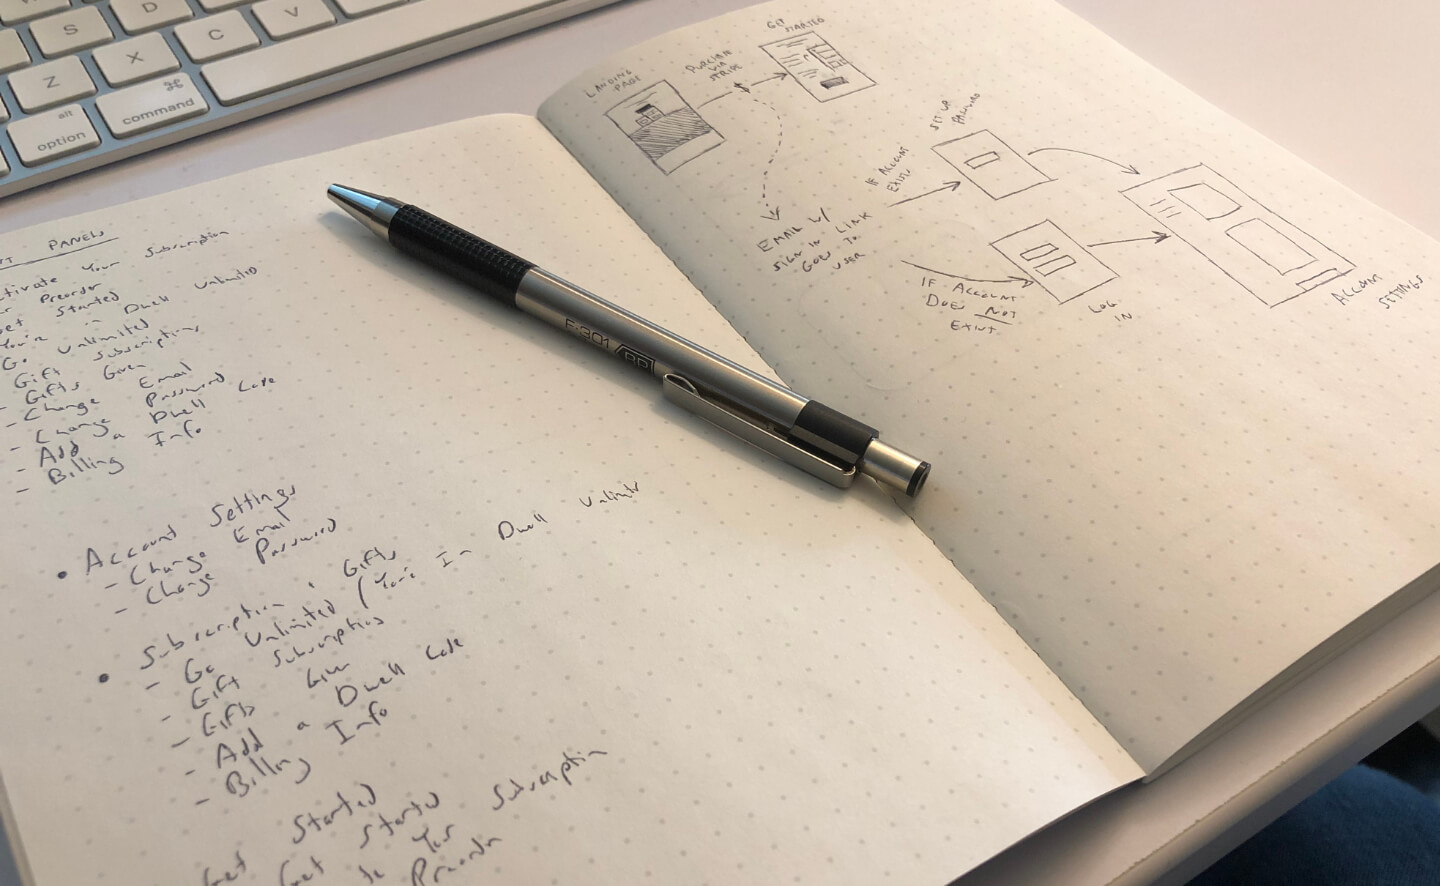 S
D
C
V
Z
X
⌘
command
alt
option
PANELS
Your Subscription
Preorder
Started
You're in Dwell Unlimited
Go Unlimited
Gift Subscription
- Gifts Given
- Change Email
- Change Password
- Add a Dwell Code
- Billing Info
• Account Settings
- Change Email
- Change Password
• Subscription + Gifts
- Go Unlimited / You're In Dwell Unlimited
- Gift Subscription
- Gifts Given
- Add a Dwell Code
- Billing Info
Get Started
Get Started
Your Subscription
Preorder
F-301
LANDING
PAGE
PURCHASE
VIA
STRIPE
GET
STARTED
EMAIL W/
SIGN IN LINK
GOES TO
USER
IF ACCOUNT
EXISTS
SET UP
PASSWORD
IF ACCOUNT
DOES NOT
EXIST
LOG
IN
ACCOUNT
SETTINGS